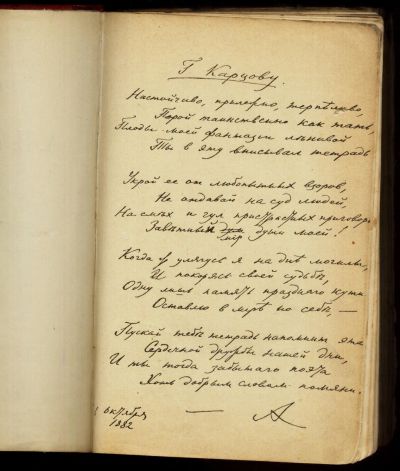 Г Карцову.
Настойчиво, прилежно, терпѣливо,
Порой таинственно какъ тать,
Плоды моей фантазіи лѣнивой
Ты в эту вписывал тетрадь
Укрой ее от любопытных взоров,
Не отдавай на суд людей,
На смѣх и гул пристрастных приговоров
Завѣтный мір души моей!
Когда ж улягусь я на днѣ могилы,
И покорясь своей судьбѣ,
Одну лишь память праздного кутилы
Оставлю в мірѣ по себѣ, —
Пускай тебѣ тетрадь напомнит эта
Сердечной дружбы нашей дни,
И ты тогда забытаго поэта
Хоть добрым словом помяни.
октября
1882
— А